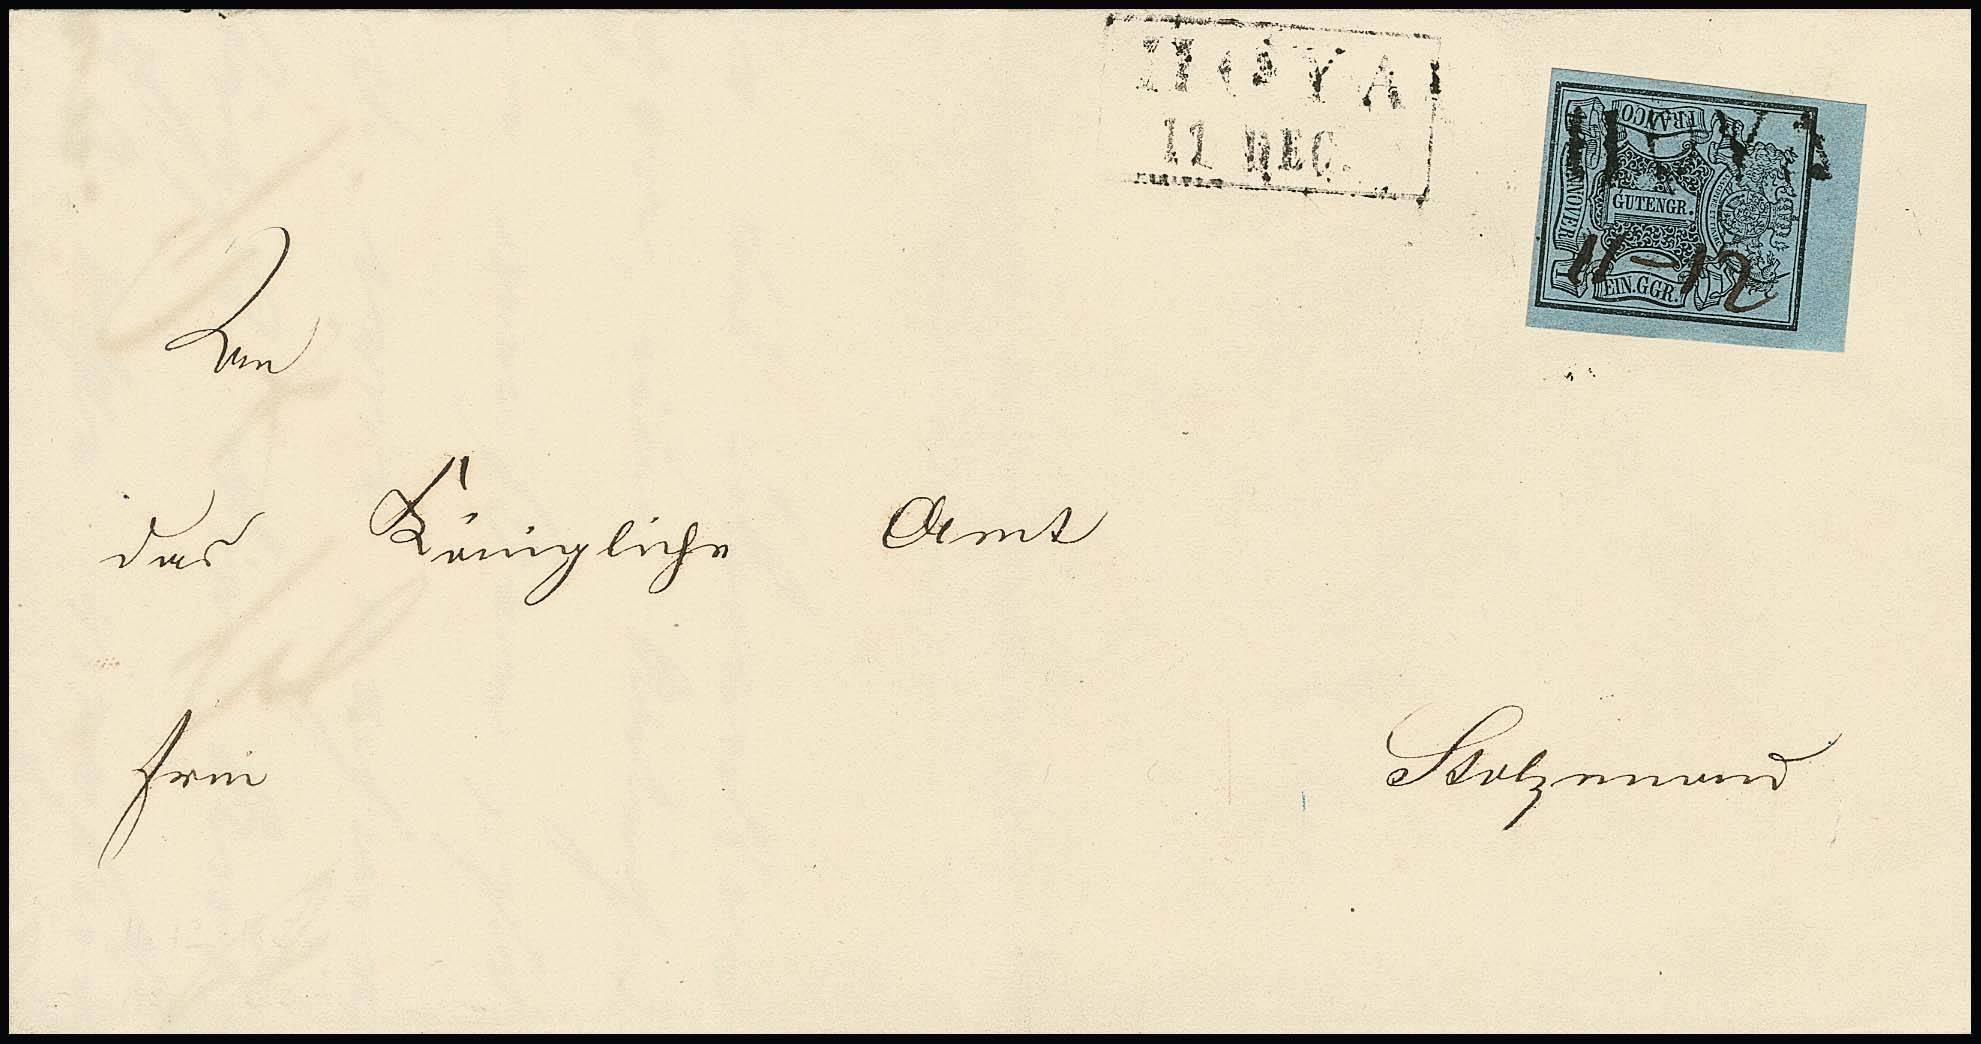 HOYA
11 DEC.
FRANCO
HANNOVER
GUTENGR.
EIN.GGR.
11-12
An
das Königliche Amt
frei Stolzenau